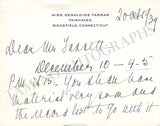 MISS GERALDINE FARRAR
FAIRHAVEN
RIDGEFIELD, CONNECTICUT
20 Oct 39
Dear Mr
December 10 - 4-5
P.M. You shall have
material very soon and
the record list to go with it